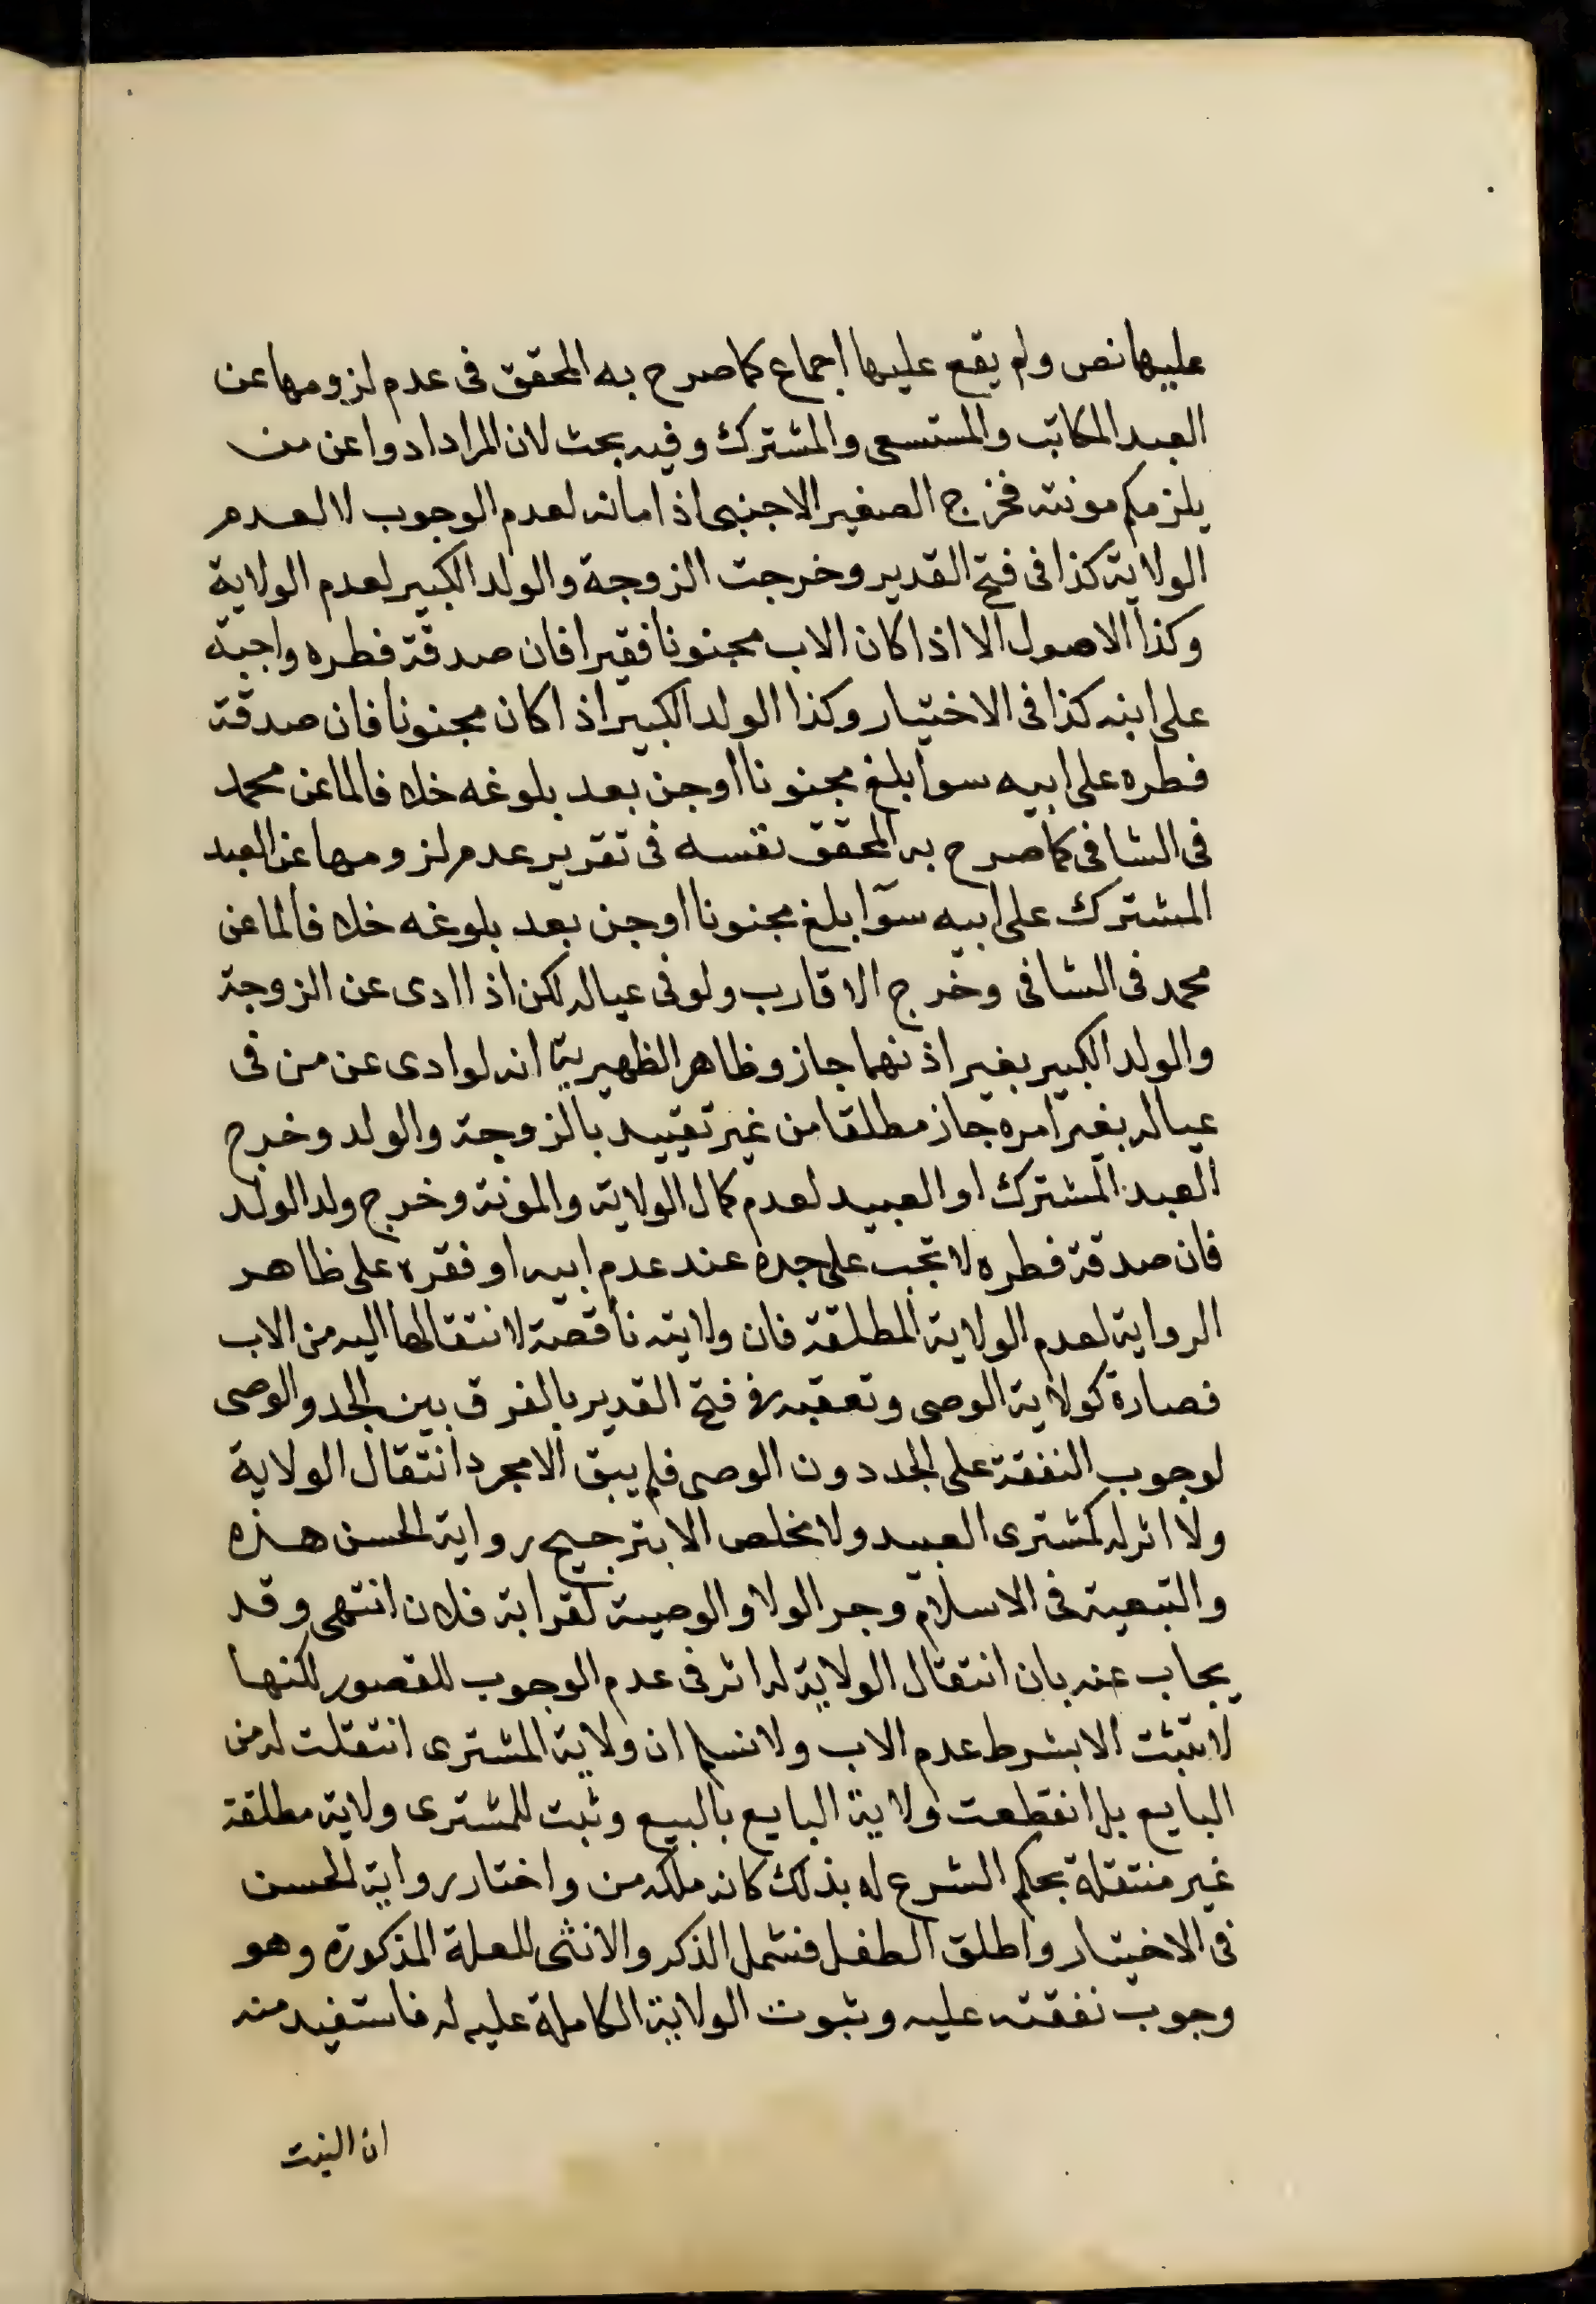 عليها نص ولم يقع عليها اجماع كما صرح به المحقق فى عدم لزومها عن
العبد المكاتب والمستسعى والمشترك وفيه بحث لان المراد ادوا عن من
يلزمكم مونته فخرج الصغير الاجنبى اذا مانه لعدم الوجوب لا لعدم
الولاية كذا فى فتح القدير وخرجت الزوجة والولد الكبير لعدم الولاية
وكذا الاصول الا اذا كان الاب مجنونا فقيرا فان صدقة فطره واجبة
على ابنه كذا فى الاختيار وكذا الولد الكبير اذا كان مجنونا فان صدقة
فطره على ابيه سوا بلغ مجنونا او جن بعد بلوغه خلا فالما عن محمد
فى الشافى كما صرح به المحقق نفسه فى تقرير عدم لزومها عن العبد
المشترك على ابيه سوآ بلغ مجنونا او جن بعد بلوغه خلا فالما عن
محمد فى الشافى وخرج الاقارب ولو فى عياله لكن اذا ادى عن الزوجة
والولد الكبير بغير اذنهما جاز وظاهر الظهيرية انه لو ادى عن من فى
عياله بغير امره جاز مطلقا من غير تقييد بالزوجة والولد وخرج
العبد المشترك او العبيد لعدم كمال الولاية والمونة وخرج ولد الولد
فان صدقة فطره لا تجب على جده عند عدم ابيه او فقره على ظاهر
الرواية لعدم الولاية المطلقة فان ولايته ناقصة لانتقالها اليه من الاب
فصارة كولاية الوصى وتعقبه فى فتح القدير بالفرق بين الجد والوصى
لوجوب النفقة على الجد دون الوصى فلم يبق الا مجرد انتقال الولاية
ولا اثر له كمشترى العبد ولا مخلص الا بترجيح رواية الحسن هذه
والتبعية فى الاسلام وجر الولا والوصية لقرابة فلان انتهى وقد
يجاب عنه بان انتقال الولاية له اثر فى عدم الوجوب للقصور لكنها
لا تثبت الا بشرط عدم الاب ولا نسلم ان ولاية المشترى انتقلت له من
البايع بل انقطعت ولاية البايع بالبيع وثبت للمشترى ولاية مطلقة
غير منتقلة بحكم الشرع له بذلك كانه ملكه من واختار رواية الحسن
فى الاختيار واطلق الطفل فشمل الذكر والانثى للعلة المذكورة وهو
وجوب نفقته عليه وثبوت الولاية الكاملة عليه له فاستفيد منه
ان البنت